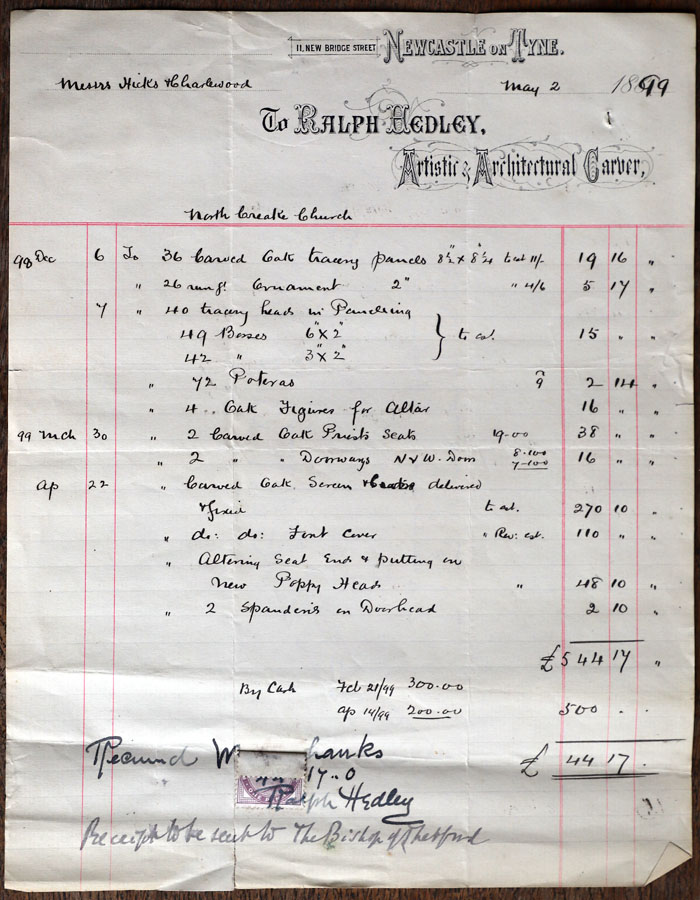 11, NEW BRIDGE STREET NEWCASTLE ON TYNE.
Messrs Hicks & Charlewood May 2 1899
To RALPH HEDLEY,
Artistic & Architectural Carver,
North Creake Church
98 Dec 6 To 36 Carved Oak tracery panels 8½" x 8¼" to est 11/- 19 16 "
" 26 rung! Ornament 2" " 4/6 5 17 "
7 " 40 tracery heads in Panelling
49 Bosses 6" x 2" } to est. 15 " "
42 " 3" x 2"
" 72 Poteras 9 2 14 "
" 4 .. Oak Figures for Altar 16 " "
99 Mch 30 " 2 Carved Oak Priests Seats 19-00 38 " "
" 2 " " Doorways N & W. Doors 8-100 16 " "
7-100
Ap 22 " Carved Oak Screen delivered
& fixed to est. 270 10 "
" do: do: Font Cover " Rev: est. 110 " "
" Altering Seat Ends & putting on
New Poppy Heads " 48 10 "
" 2 Spandrils on Doorhead 2 10 "
£544 17 "
By Cash Feb 21/99 300.00
Ap 14/99 200.00 500 . .
Received W hanks £ 44 17 .
17..0
Ralph Hedley
Receipt to be sent to The Bishop of Thetford